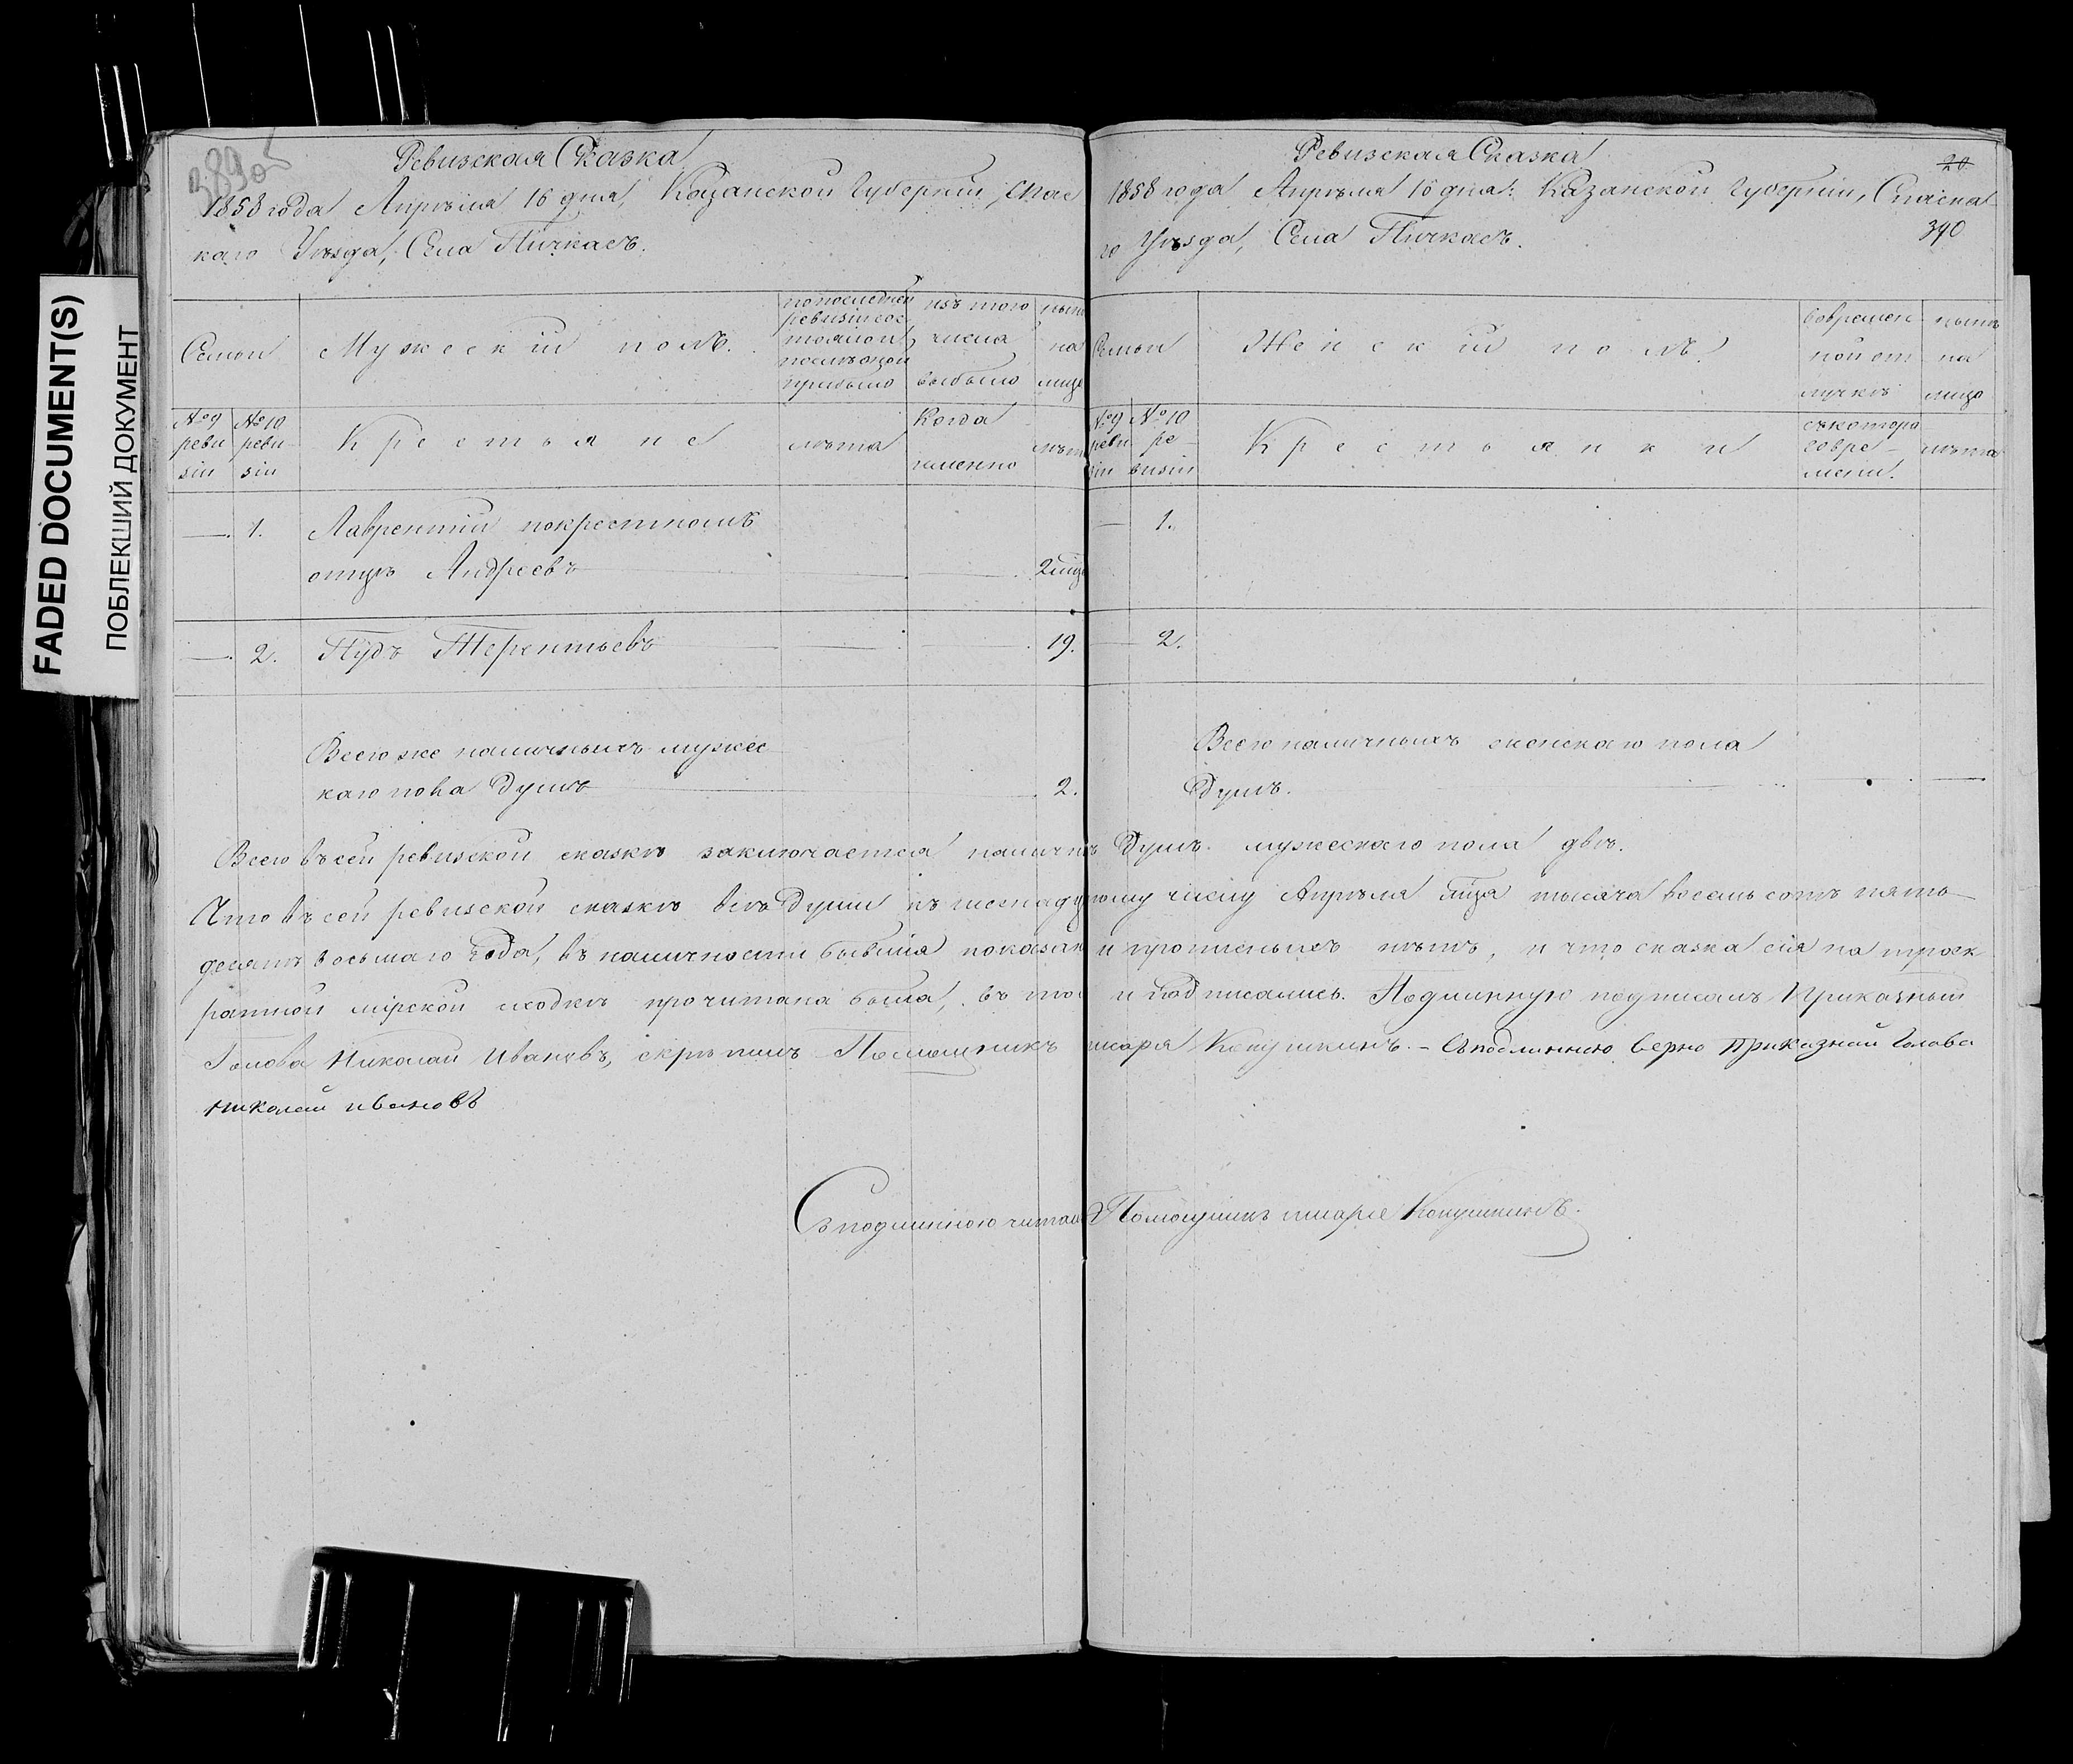 FADED DOCUMENT(S)
ПОБЛЕКШИЙ ДОКУМЕНТ
389об
Ревизская Сказка
1858 года Апрѣля 16 дня, Казанской Губерніи, Спас
каго Уѣзда, Села Пичкасъ.
Семьи
Мужескій полъ.
по последней
ревизіи сос
тояло и
послѣ оной
прибыло
изъ того
числа
выбыло
ныне
на
лице
№ 9
реви
зіи
№ 10
реви-
зіи
Крестьяне
лѣта
Когда
именно
лѣта
1. Лаврентій покрестному
отцу Андреевъ
2 мца
2. Нудъ Терентьевъ 19.
Всего же наличныхъ мужес
каго пола Душъ 2.
Ревизская Сказка
20
1858 года Апрѣля 16 дня. Казанской Губерніи, Спаска
го Уѣзда, Села Пичкасъ.
390
Семьи
Женскій полъ.
во времен
ной от
лучкѣ
нынѣ
на
лицо
№ 9
реви
зіи
№ 10
ре-
визіи
Крестьянки
съ котора
го вре-
мени.
лѣта
1.
2.
Всего наличныхъ женскаго пола
Душъ.
Всего въ сей ревизской сказкѣ заключается налични Душъ мужескаго пола двѣ.
Что въ сей ревизской сказкѣ всѣ Души къ шестнадцатому числу Апрѣля мца тысяча восемьсотъ пять-
десятъ восьмаго года, въ наличности бывшія показаны и прописныхъ нѣтъ, и что сказка сія на троек
ратной мірской сходкѣ прочитана была, въ том и подписались. Подлинную подписалъ Приказный
Голова Николай Ивановъ, скрѣпилъ Помощникъ писаря Кокушкинъ. - Съ подлинною верно Приказной Голова
Николай ивановъ
Съ подлинною читалъ Помощникъ писаря Кокушкинъ.